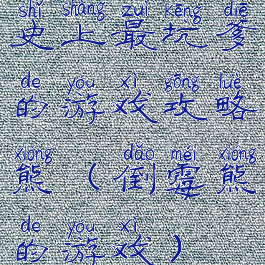 shǐ shàng zuì kēng diē
史上最坑爹
de yóu xì gōng lüè
的游戏攻略
xióng dǎo méi xióng
熊（倒霉熊
de yóu xì
的游戏）